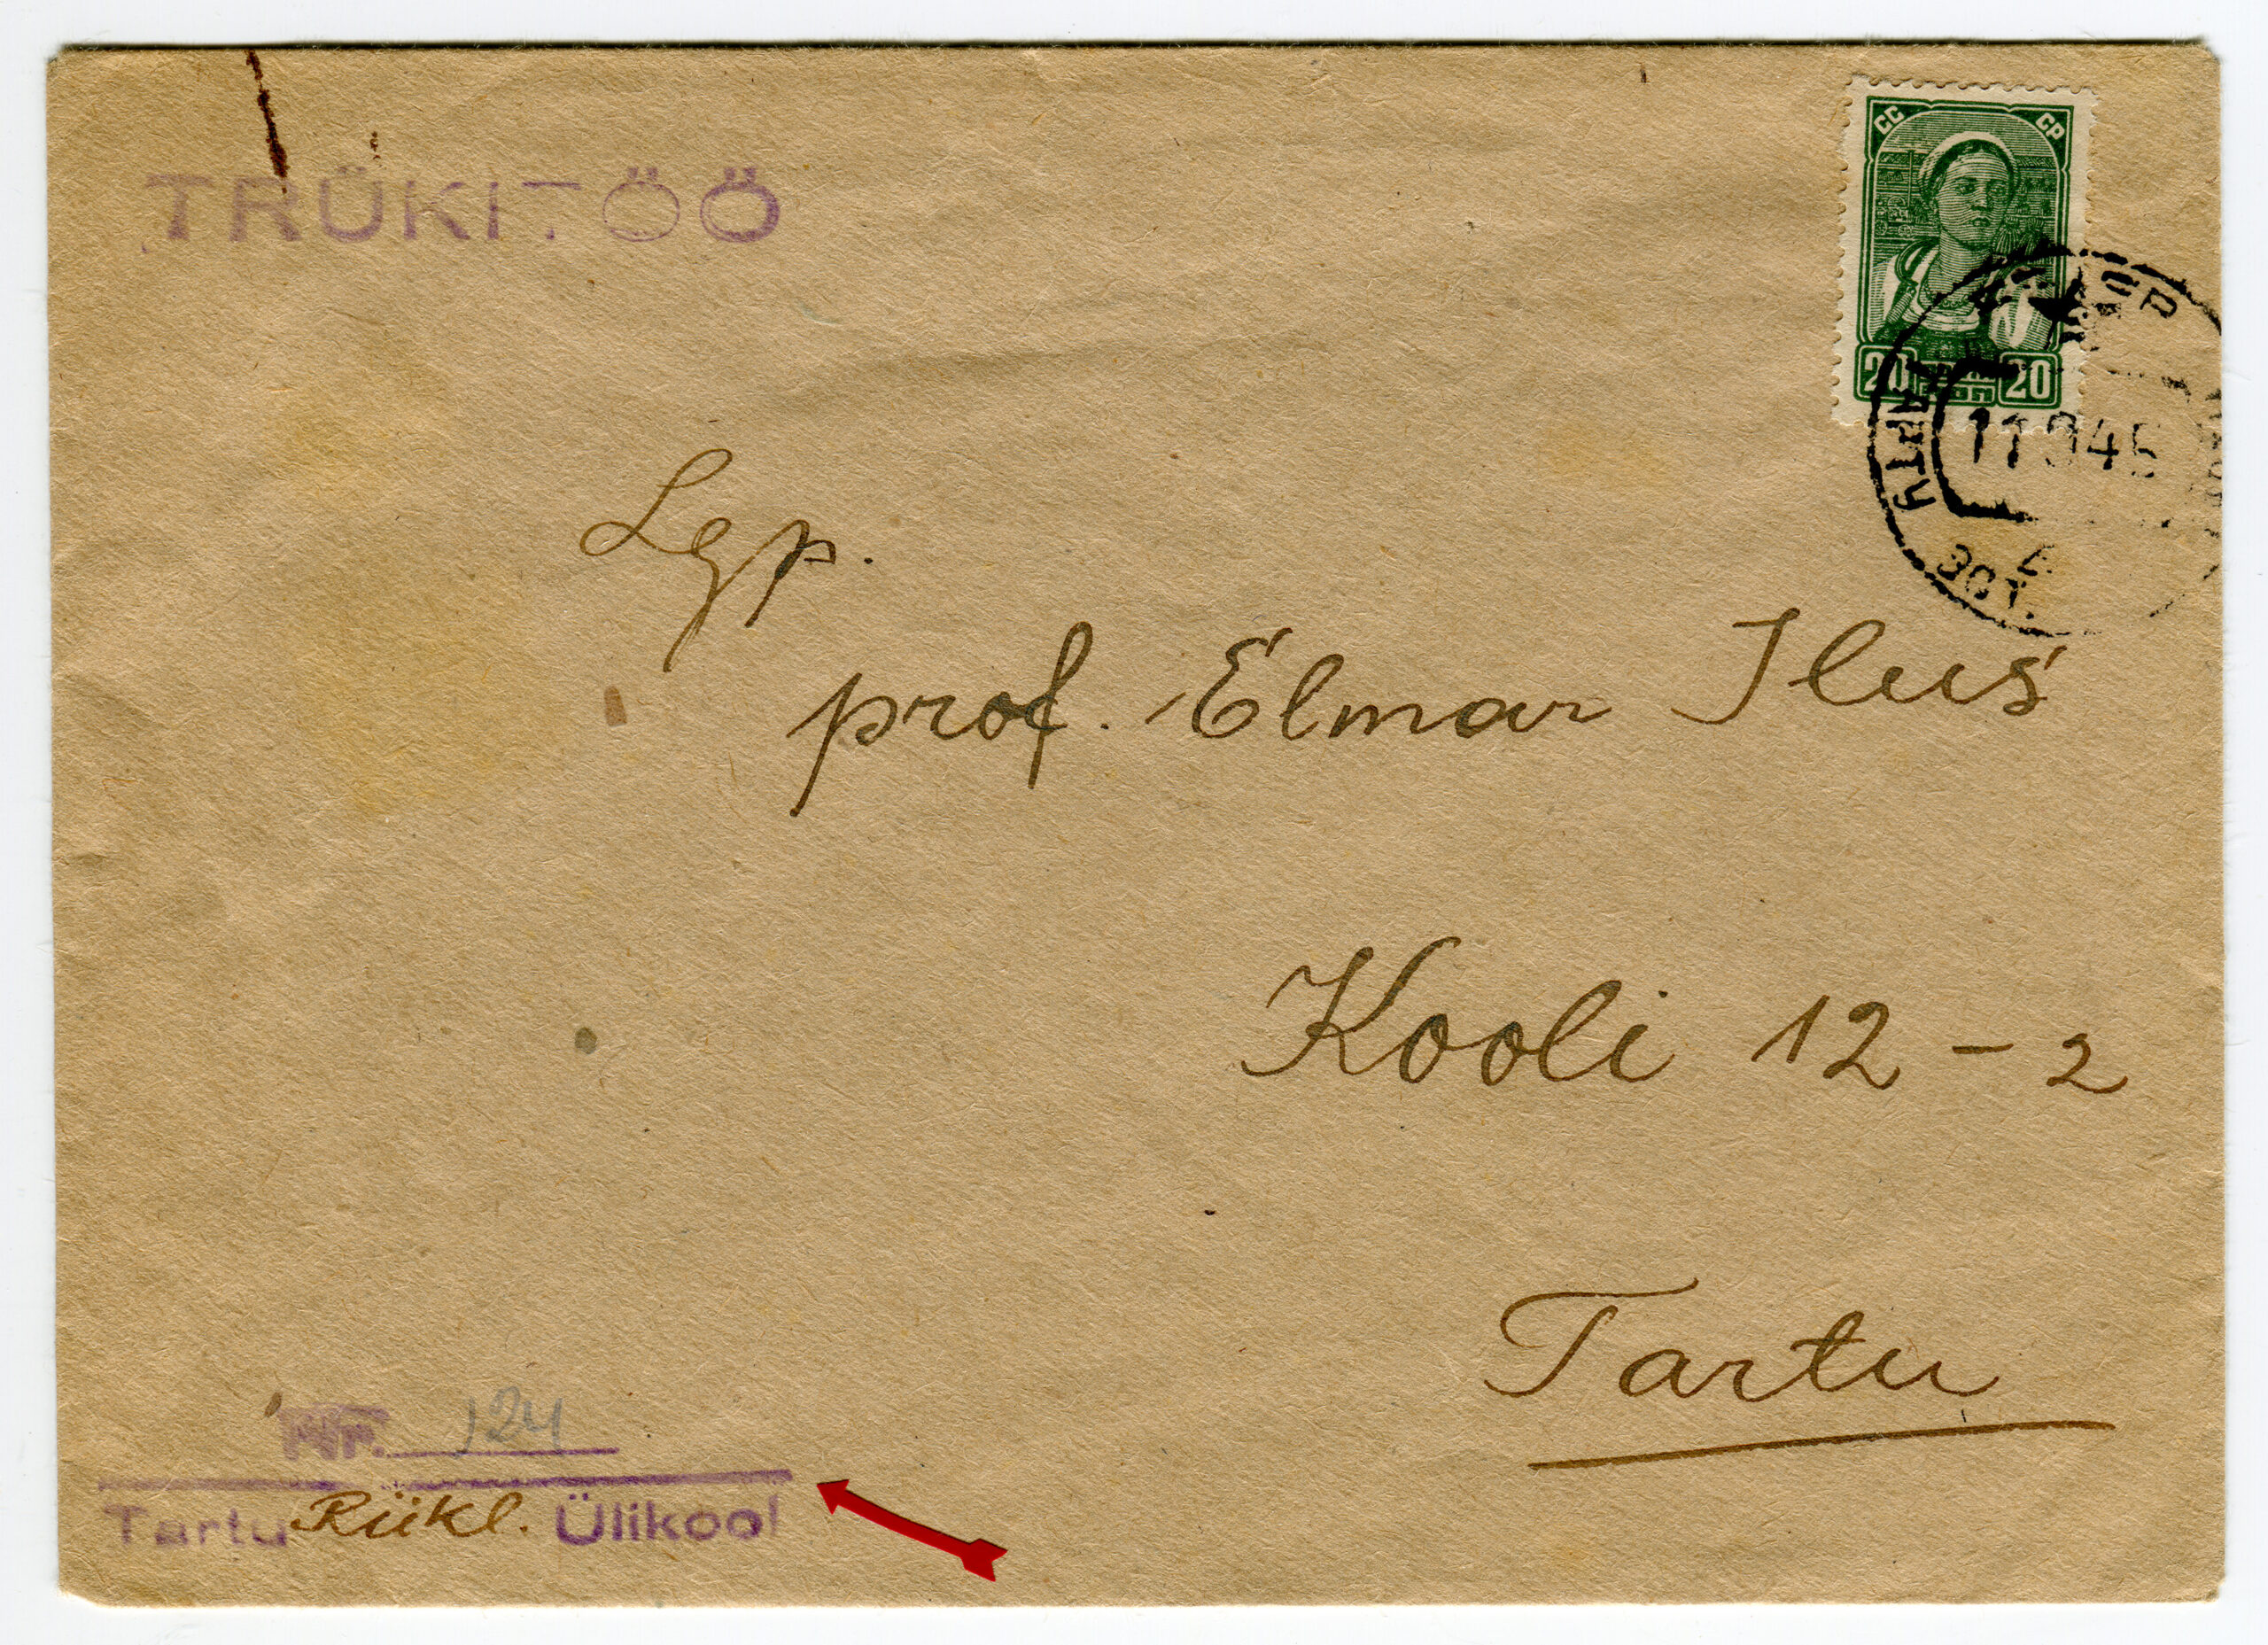 TRÜKITÖÖ
СС СР
20 20
ТАРТУ
11 9 45
ЭСТ.
Lgp.
prof. Elmar Ilus
Kooli 12 - 2
Tartu
Nr. 124
Tartu Riikl. Ülikool